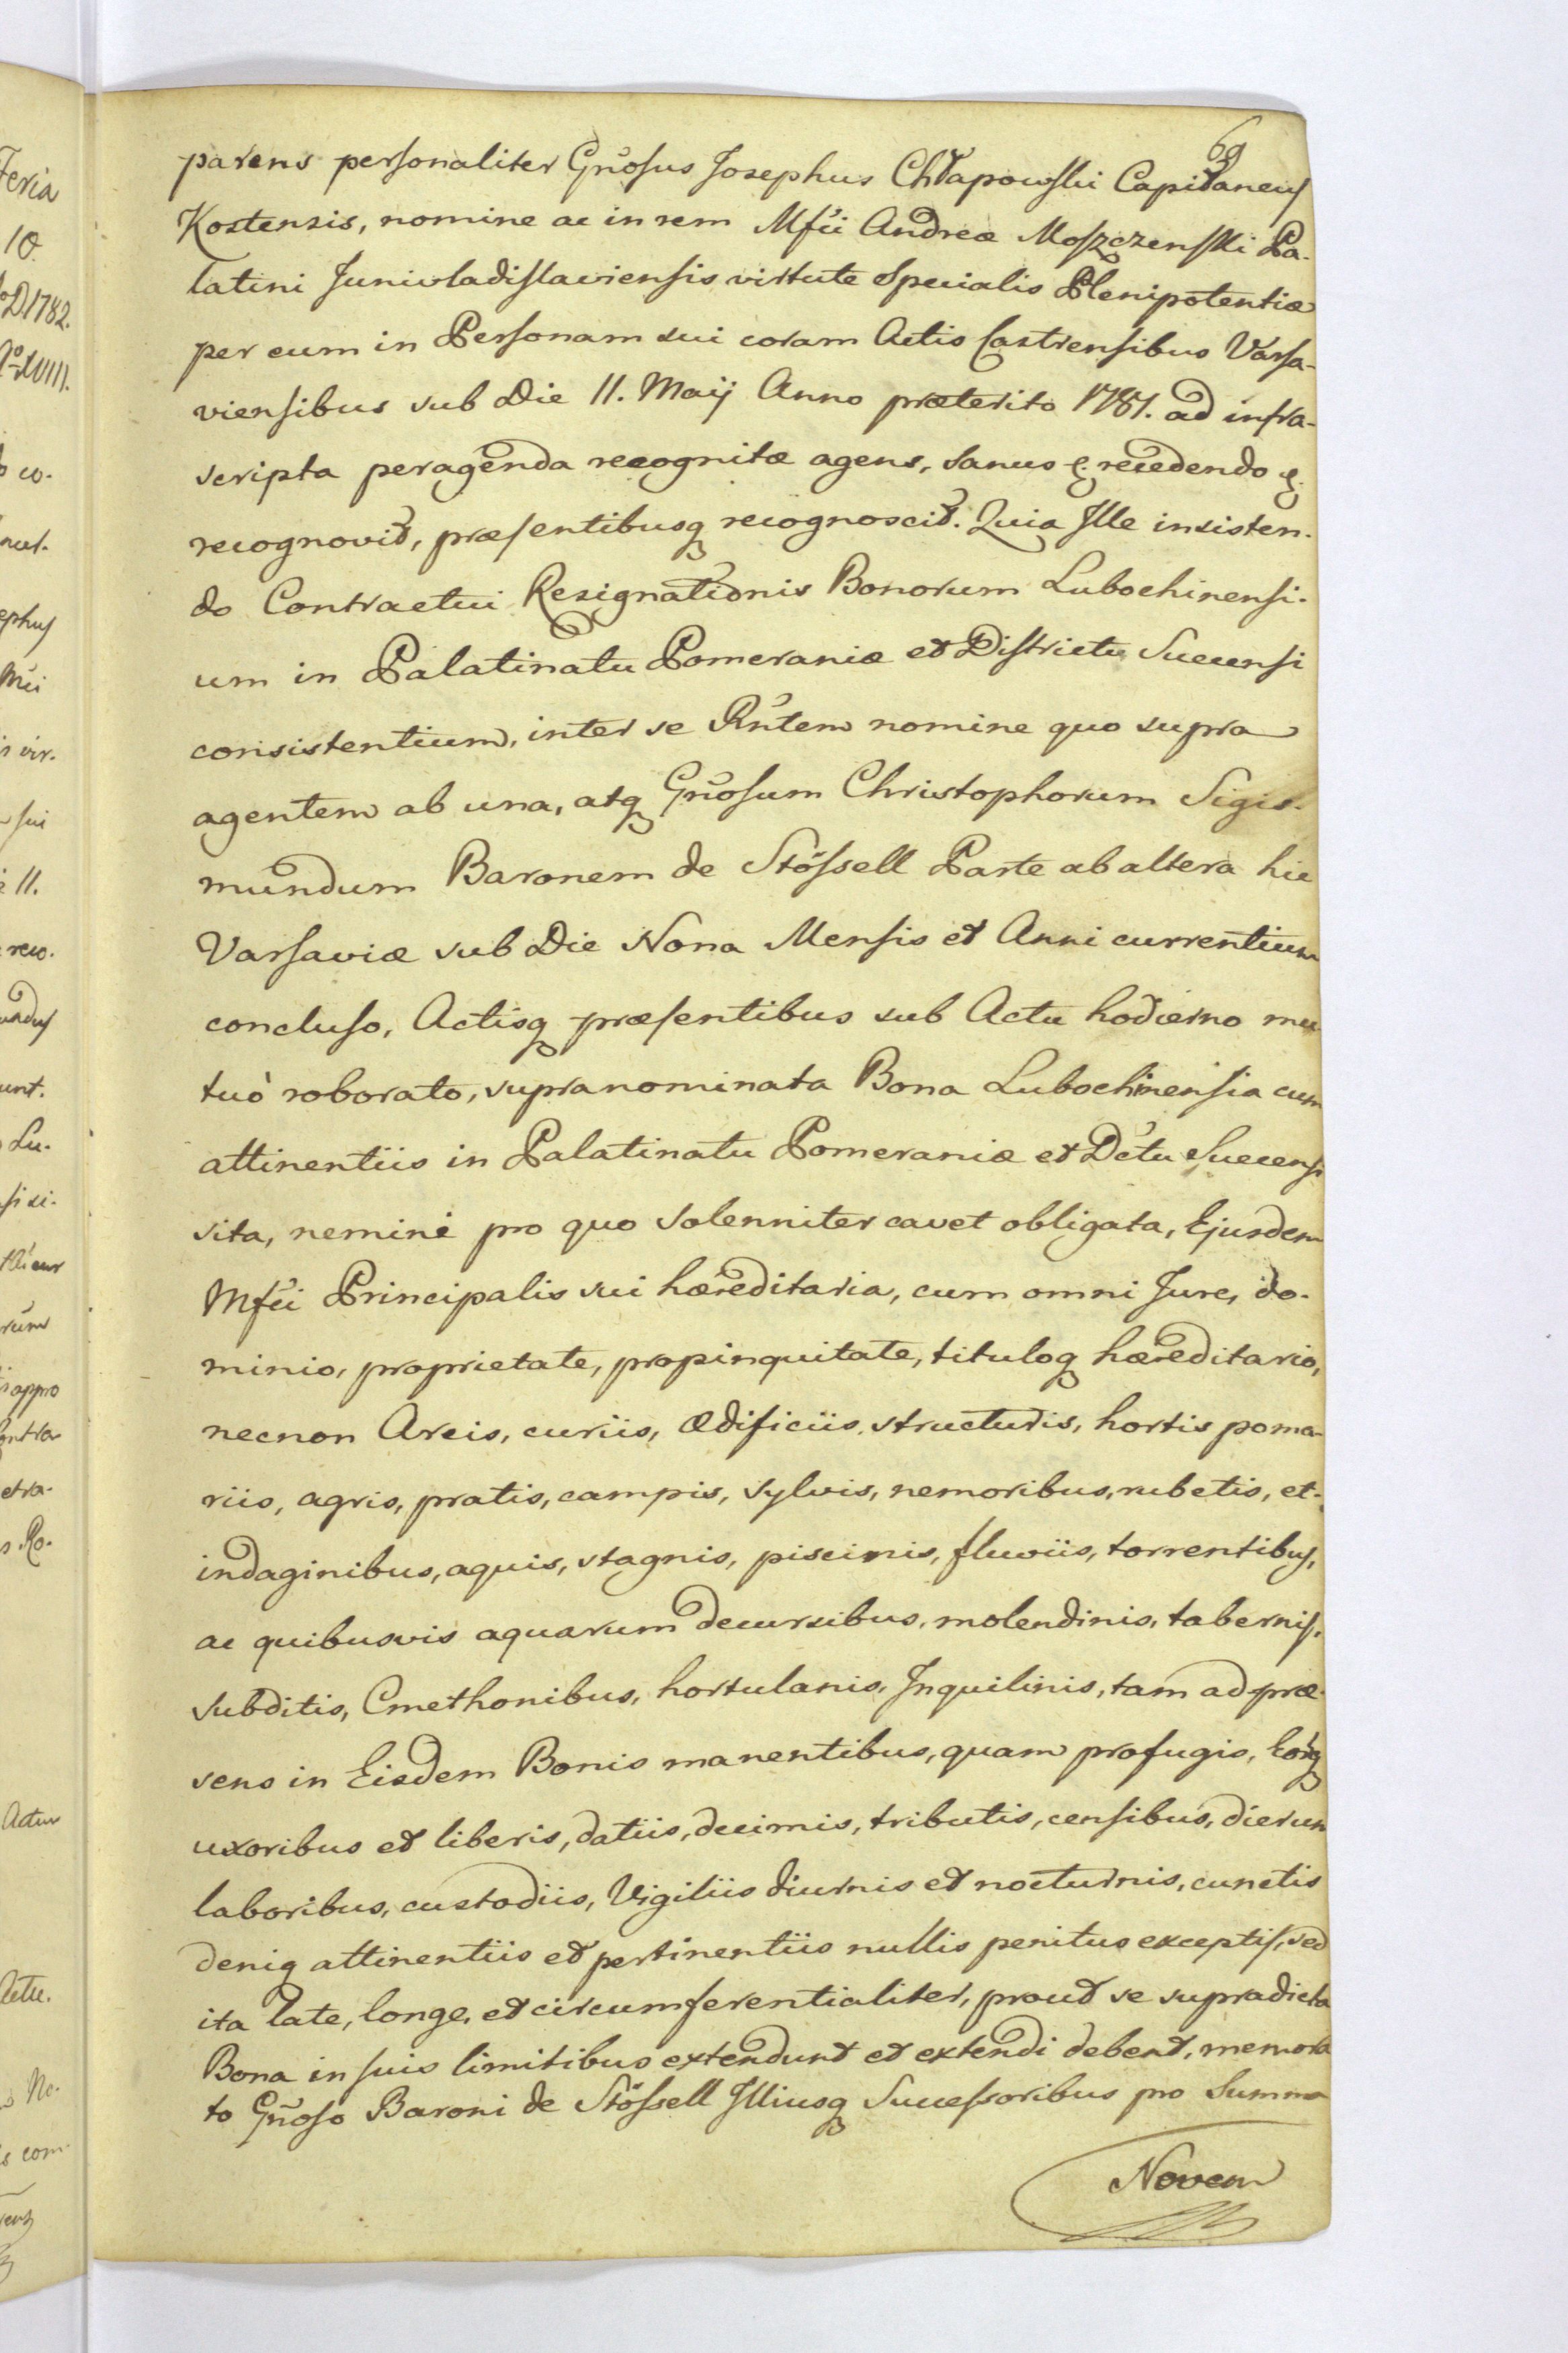 69
parens personaliter Gnosus Josephus Chłapowski Capitaneus
Kostensis, nomine ac in rem Mfci Andreæ Moszczenski Pa-
latini Junivladislaviensis virtute Specialis Plenipotentiæ
per eum in Personam sui coram Actis Castrensibus Varsa-
viensibus sub Die 11. Maij Anno præterito 1781. ad infra-
scripta peragenda recognitæ agens, sanus &. recedendo &.
recognovit, præsentibusq recognoscit. Quia Ille insisten-
do Contractui Resignationis Bonorum Lubochinensi-
um in Palatinatu Pomeraniæ et Districtu Suecensi
consistentium, inter se Rntem nomine quo supra
agentem ab una, atq Gnosum Christophorum Sigis-
mundum Baronem de Stössell Parte ab altera hic
Varsaviæ sub Die Nona Mensis et Anni currentium
concluso, Actisq præsentibus sub Actu hodierno mu
tuò roborato, supranominata Bona Lubochinensia cum
attinentiis in Palatinatu Pomeraniæ et Dctu Suecensi
sita, nemini pro quo solenniter cavet obligata, Ejusdem
Mfci Principalis sui hæreditaria, cum omni Jure, do-
minio, proprietate, propinquitate, tituloq hæreditario,
necnon Areis, curiis, Ædificiis, structuris, hortis poma-
riis, agris, pratis, campis, sylvis, nemoribus, rubetis, et-
indaginibus, aquis, stagnis, piscinis, fluviis, torrentibus,
ac quibusvis aquarum decursibus, molendinis, tabernis,
subditis, Cmethonibus, hortulanis, Inquilinis, tam ad præ-
sens in Eisdem Bonis manentibus, quam profugis, Eorq
uxoribus et liberis, datiis, decimis, tributis, censibus, dierum
laboribus, custodiis, Vigiliis diurnis et nocturnis, cunctis
deniq attinentiis et pertinentiis nullis penitus exceptis, sed
ita late, longe, et circumferentialiter, prout se supradicta
Bona in suis limitibus extendunt et extendi debent, memora
to Gnoso Baroni de Stössell Illiusq Successoribus pro Summa
Novem
Feria
10
D 1782.
XVIII.
co-
ephus
Mfci
vir-
sui
11.
reco-
unt.
Lu-
appro
Contra
etra-
Ro-
Actum
Actu.
No-
com-